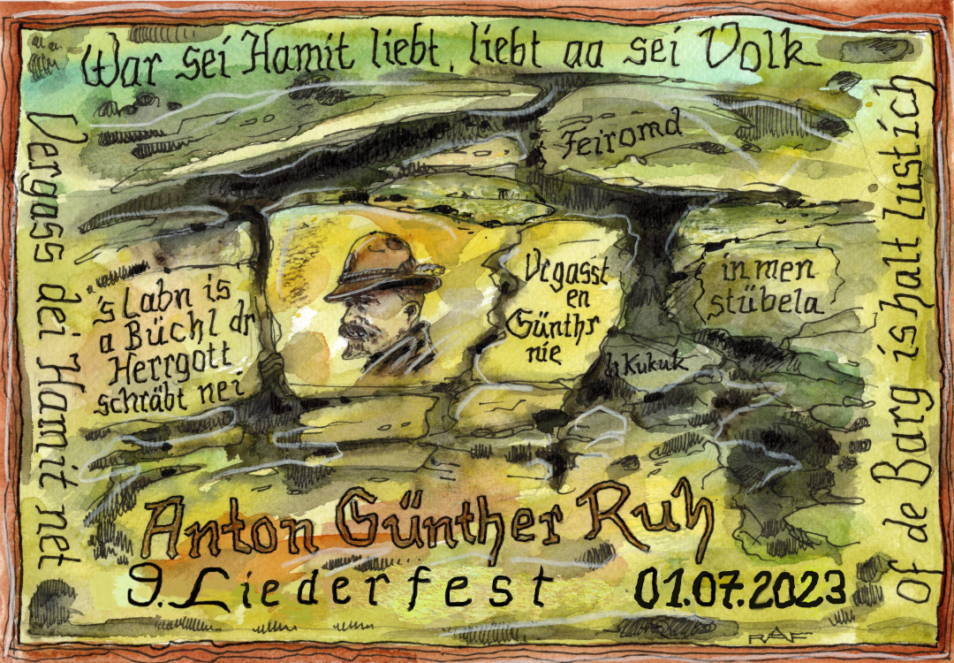 War sei Hamit liebt, liebt aa sei Volk
Vergass dei Hamit net
of de Barg is halt lustich
Feiromd
"'s Labn is
a Büchl dr
Herrgott
schräbt nei
Vrgasst
en
Günthr
nie
in men
stübela
Kukuk
Anton Günther Ruh
9. Liederfest 01.07.2023
RAF